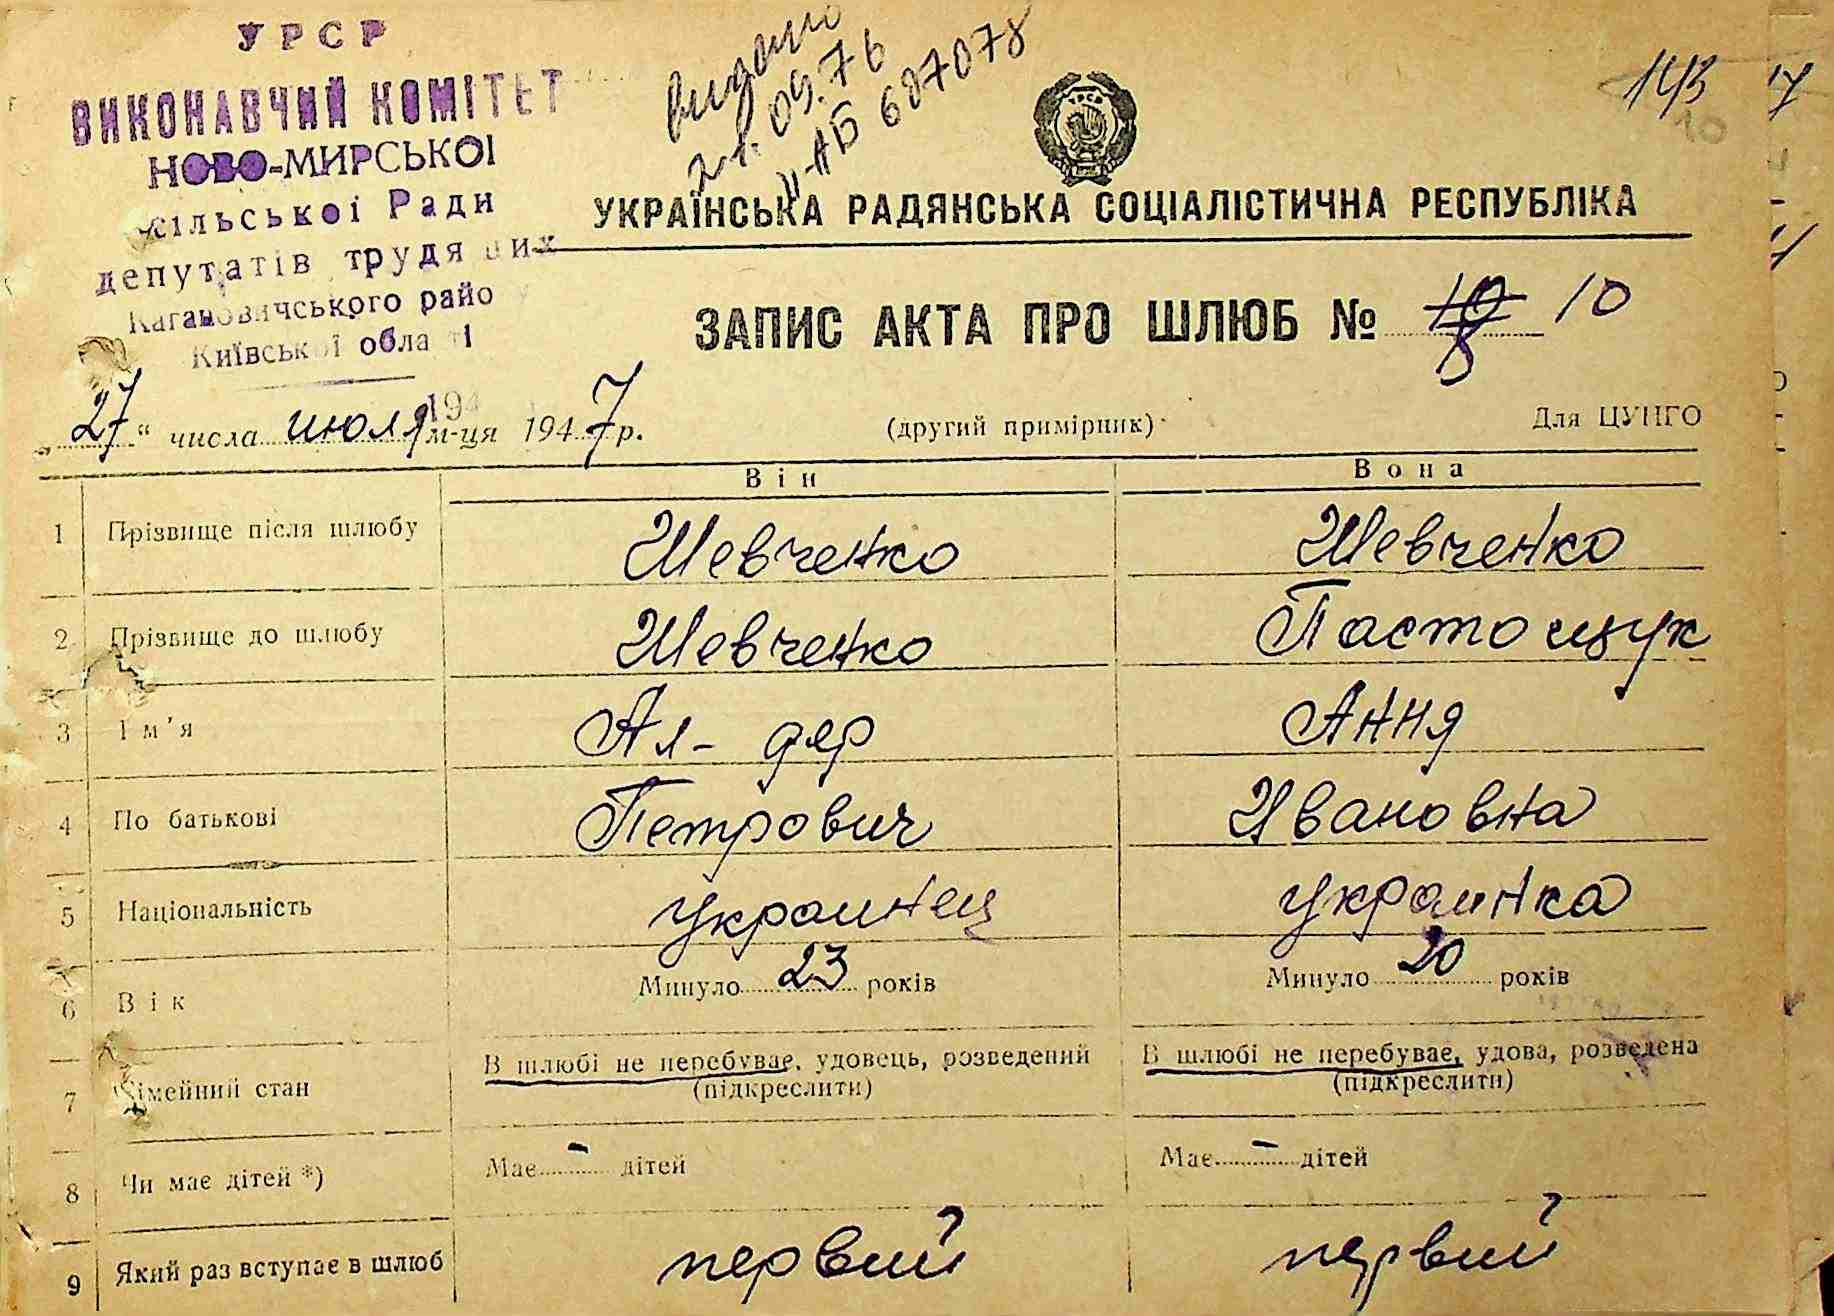 УРСР
ВИКОНАВЧИЙ КОМІТЕТ
НОВО-МИРСЬКОІ
сільськоі Ради
депутатів трудя их
Кагановичського райо
Київської обла ті
194
видано
21.09.76
ІІ-АБ 607078
143
10
УРСР
УКРАЇНСЬКА РАДЯНСЬКА СОЦІАЛІСТИЧНА РЕСПУБЛІКА
ЗАПИС АКТА ПРО ШЛЮБ № 10 10
„27“ числа июля м-ця 1947 р. (другий примірник) Для ЦУНГО
Він Вона
1 Прізвище після шлюбу Шевченко Шевченко
2 Прізвище до шлюбу Шевченко Пастощук
3 Ім'я Ал-дер Ання
4 По батькові Петрович Ивановна
5 Національність украинец украинка
6 Вік Минуло 23 років Минуло 20 років
7 Сімейний стан В шлюбі не перебуває, удовець, розведений (підкреслити) В шлюбі не перебуває, удова, розведена (підкреслити)
8 Чи має дітей *) Має - дітей Має - дітей
9 Який раз вступає в шлюб первий первий